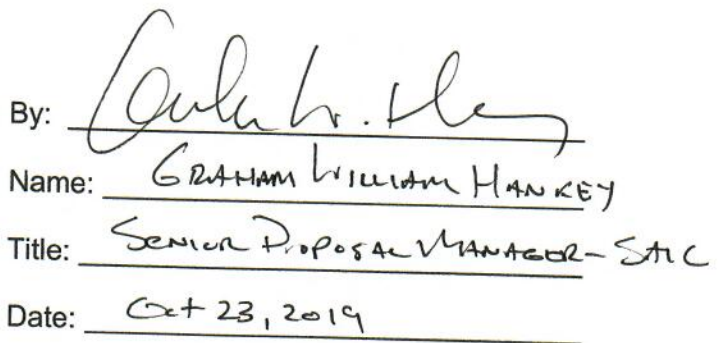 By:
Name: GRAHAM WILLIAM HANKEY
Title: SENIOR PROPOSAL MANAGER - SAIC
Date: Oct 23, 2019